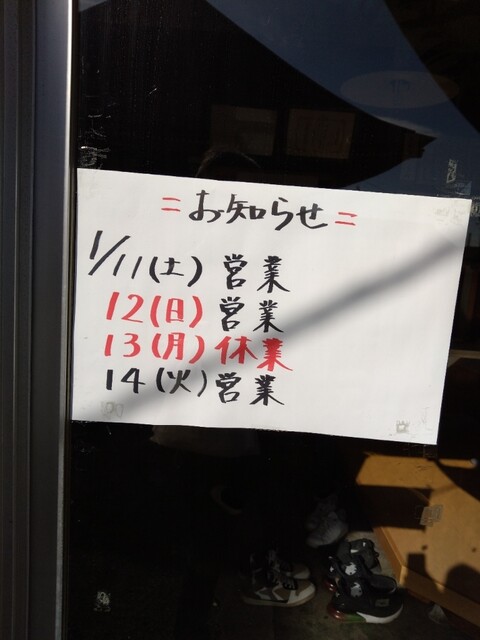 =お知らせ=
1/11(土) 営業
12(日) 営業
13(月) 休業
14(火) 営業